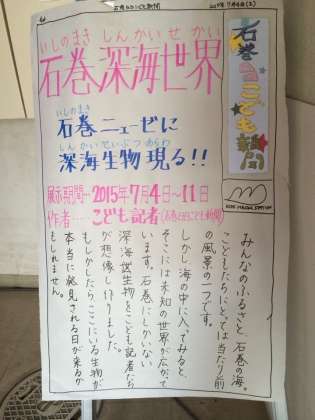 石巻日日こども新聞
2015年7月4日(土)
石巻日日こども新聞
いしのまき しんかいせかい
石巻 深海世界
いしのまき
石巻ニューゼに
しんかいせいぶつ あらわ
深海生物現る!!
展示期間…2015年7月4日〜11日
作者…こども記者(石巻日日こども新聞)
みんなのふるさと、石巻の海。
こどもたちにとっては当たり前
の風景の一つです。
しかし海の中に入ってみると、
そこには未知の世界が広がって
います。石巻にしかいない
深海生物をこども記者たち
が想像し作りました。
もしかしたら、ここにいる生物が
本当に発見される日が来るか
もしれません。